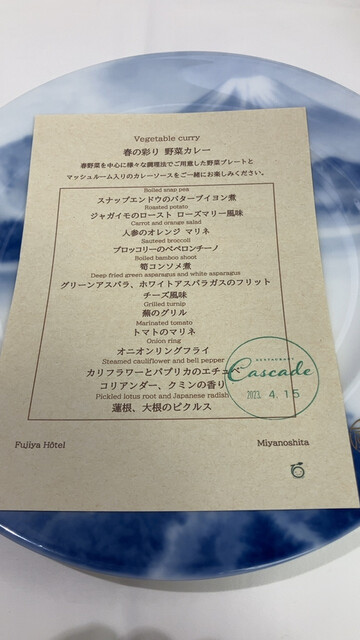 Vegetable curry
春の彩り 野菜カレー
春野菜を中心に様々な調理法でご用意した野菜プレートと
マッシュルーム入りのカレーソースをご一緒にお楽しみください。
Boiled snap pea
スナップエンドウのバターブイヨン煮
Roasted potato
ジャガイモのロースト ローズマリー風味
Carrot and orange salad
人参のオレンジ マリネ
Sauteed broccoli
ブロッコリーのペペロンチーノ
Boiled bamboo shoot
筍コンソメ煮
Deep fried green asparagus and white asparagus
グリーンアスパラ、ホワイトアスパラガスのフリット
チーズ風味
Grilled turnip
蕪のグリル
Marinated tomato
トマトのマリネ
Onion ring
オニオンリングフライ
Steamed cauliflower and bell pepper
カリフラワーとパプリカのエチュベ
コリアンダー、クミンの香り
Pickled lotus root and Japanese radish
蓮根、大根のピクルス
RESTAURANT
Cascade
2023. 4. 15
Fujiya Hôtel
Miyanoshita